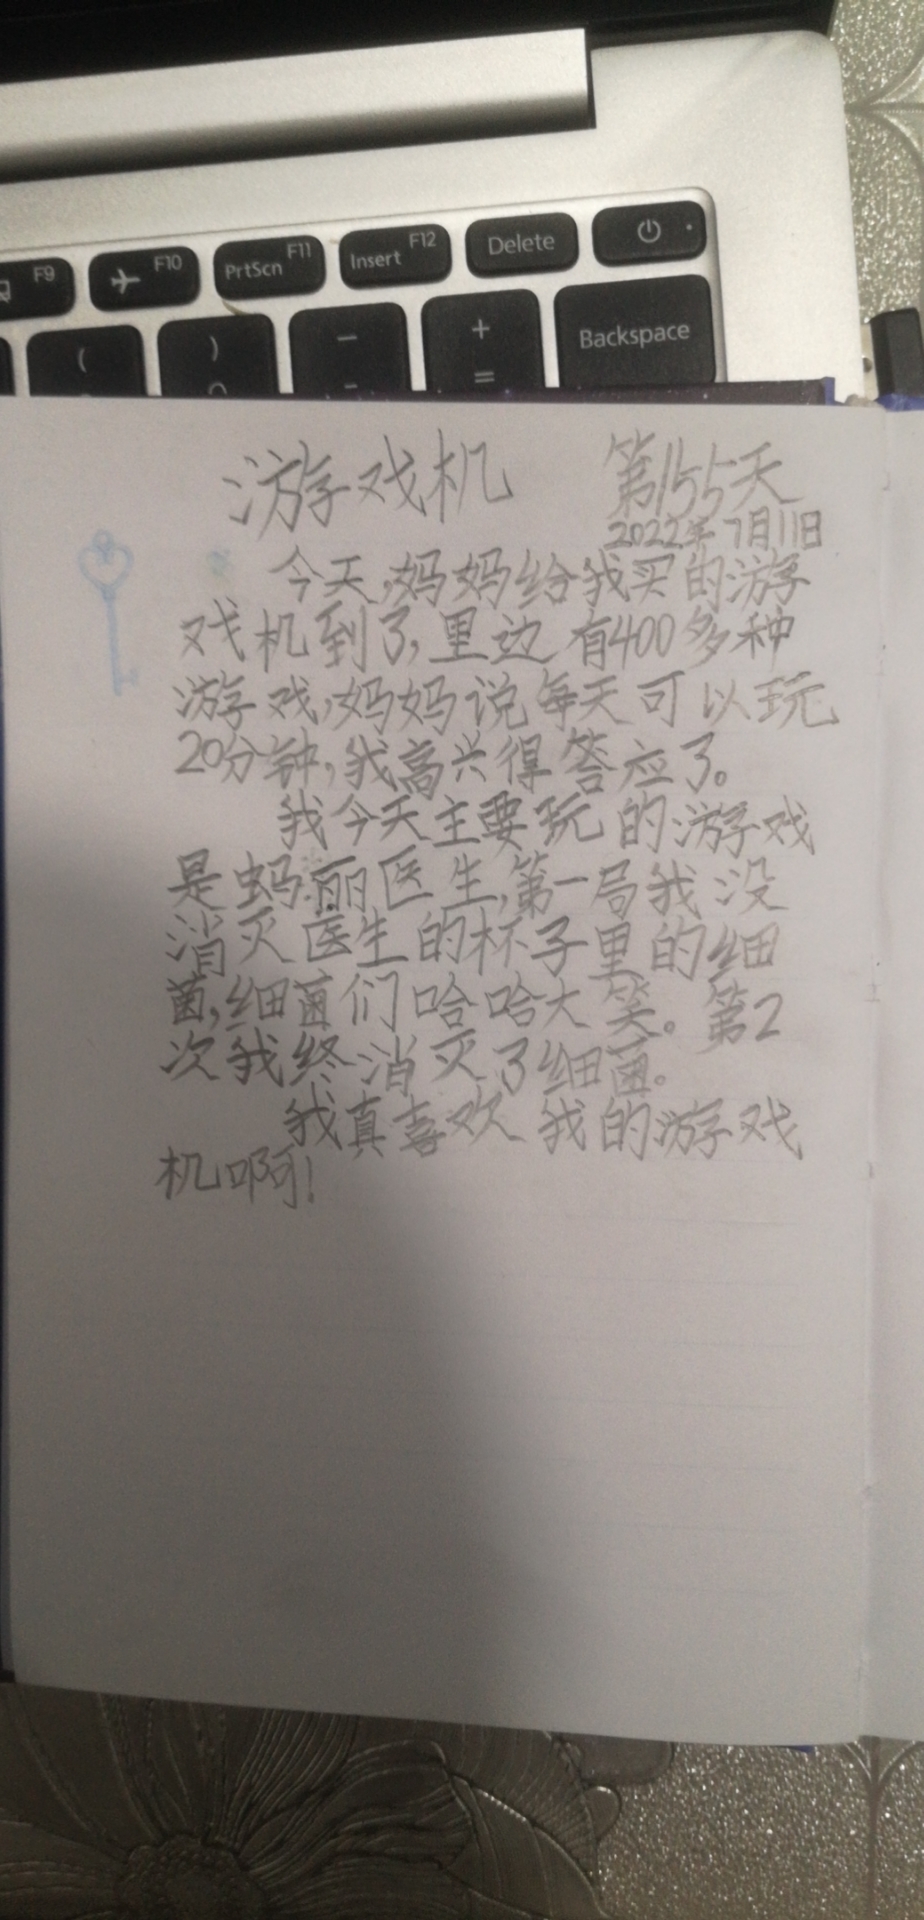 F9
F10
PrtScn F11
Insert F12
Delete
(
)
-
+
=
Backspace
游戏机 第155天
2022年7月11日
今天,妈妈给我买的游
戏机到了,里边有400多种
游戏,妈妈说每天可以玩
20分钟,我高兴得答应了。
我今天主要玩的游戏
是蚂丽医生,第一局我没
消灭医生的杯子里的细
菌,细菌们哈哈大笑。第2
次我终消灭了细菌。
我真喜欢我的游戏
机啊!